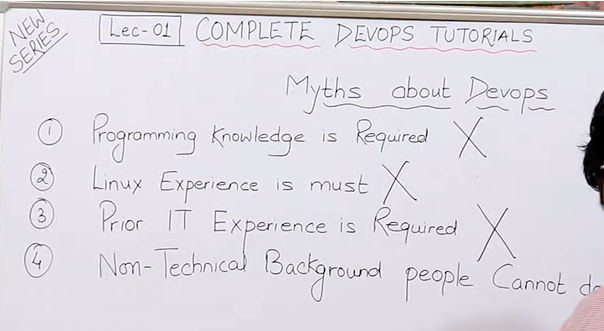 NEW
SERIES
Lec-01 COMPLETE DEVOPS TUTORIALS
Myths about Devops
1 Programming Knowledge is Required X
2 Linux Experience is must X
3 Prior IT Experience is Required X
4 Non-Technical Background people Cannot do